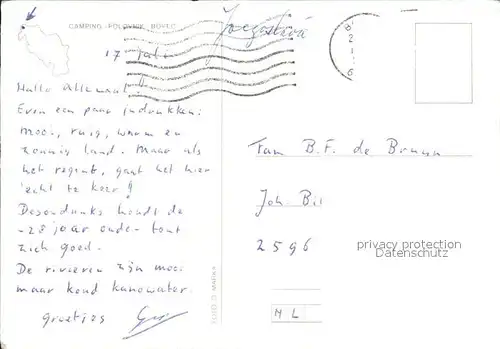 CAMPING POLOVNIK BOVEC
17 juli
Hallo Allemaal!
Even een paar indrukken:
Mooi, ruig, warm en
zonnig land. Maar als
het regent, gaat het hier
echt te keer!
Desondanks houdt de
-28 jaar oude- tent
zich goed.
De rivieren zijn mooi
maar koud kanowater.
groetjes
Fam B.F. de Bruyn
Joh. Bi
2596
NL
privacy protection
Datenschutz